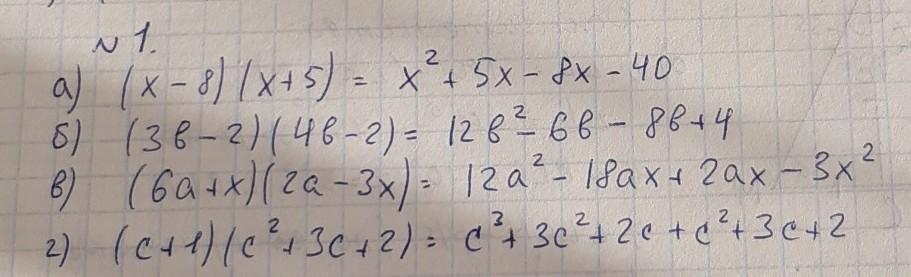 № 1.
а) (x - 8)(x + 5) = x² + 5x - 8x - 40
б) (3в - 2)(4в - 2) = 12в² - 6в - 8в + 4
в) (6a + x)(2a - 3x) = 12a² - 18ax + 2ax - 3x²
г) (c + 1)(c² + 3c + 2) = c³ + 3c² + 2c + c² + 3c + 2